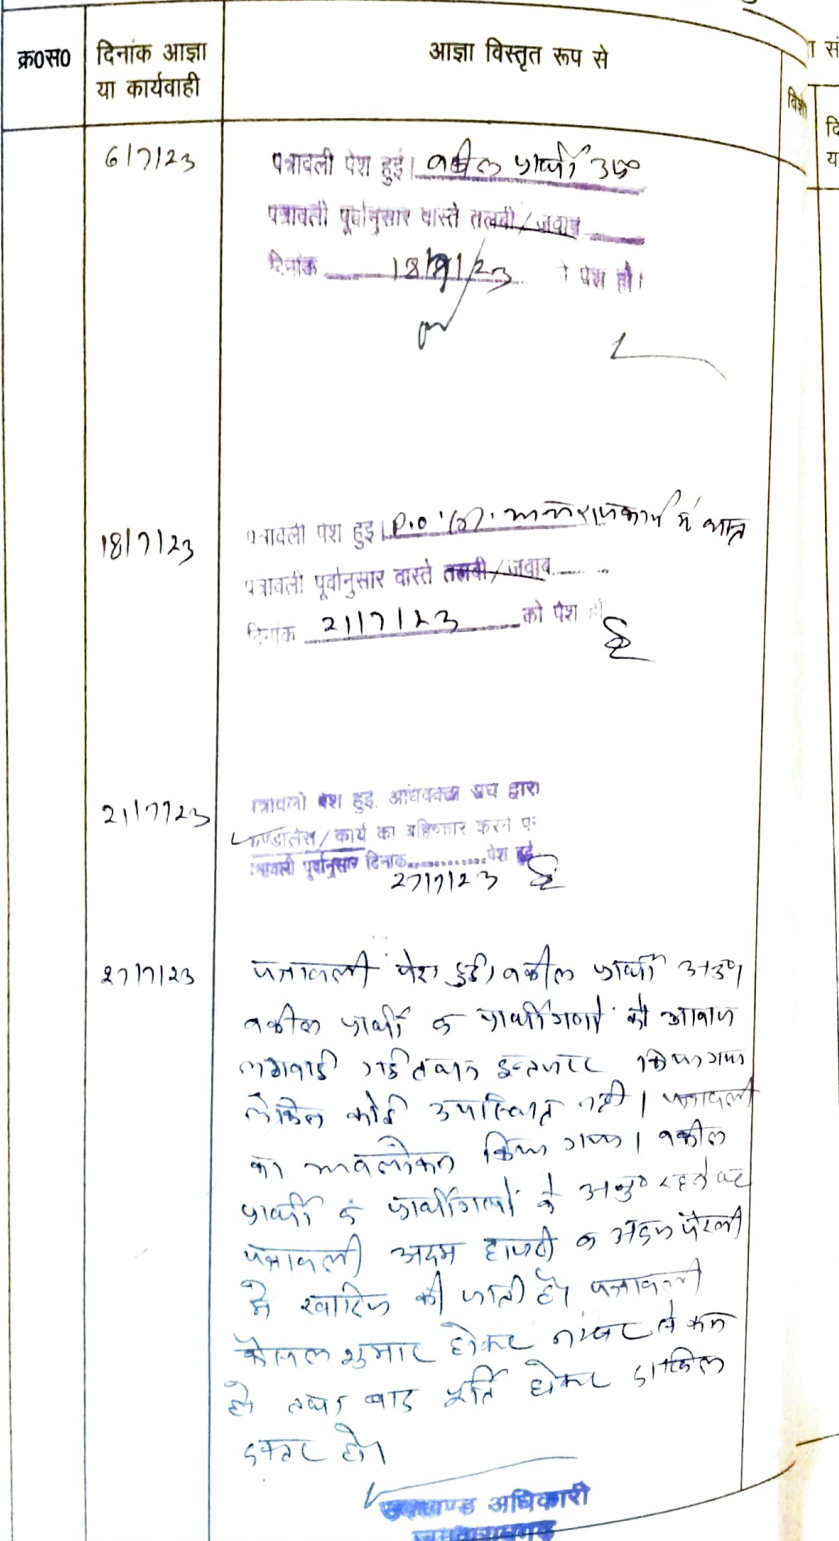 क्र०स० दिनांक आज्ञा या कार्यवाही आज्ञा विस्तृत रूप से
6/7/23 पत्रावली पेश हुई। वकील प्रार्थी उप०
पत्रावली पूर्वानुसार वास्ते तलबी/जवाब
दिनांक 18/7/23 पेश हो।
18/7/23 पत्रावली पेश हुई। P.O. राजकार्य में
पत्रावली पूर्वानुसार वास्ते तलबी/जवाब
दिनांक 21/7/23 को पेश हो
21/7/23 पत्रावली पेश हुई, अधिवक्ता संघ द्वारा
कण्डोलेंस/कार्य का बहिष्कार करने पर
पत्रावली पूर्वानुसार दिनांक पेश हुई
27/7/23
27/7/23 पत्रावली पेश हुई। वकील प्रार्थी
वकील प्रार्थी व प्रार्थीगणों को आवाज
लगवाई गई तथा इन्तजार किया गया
लेकिन कोई उपस्थित नहीं। पत्रावली
का अवलोकन किया गया। वकील
प्रार्थी व प्रार्थीगणों के अनु० रहने पर
पत्रावली अदम हाजरी व अदम पैरवी
मे खारिज की जाती है। पत्रावली
फैसल शुमार होकर नम्बर से कम
हो तथा बाद पूर्ति होकर दाखिल
दफ्तर हो।
उपखण्ड अधिकारी